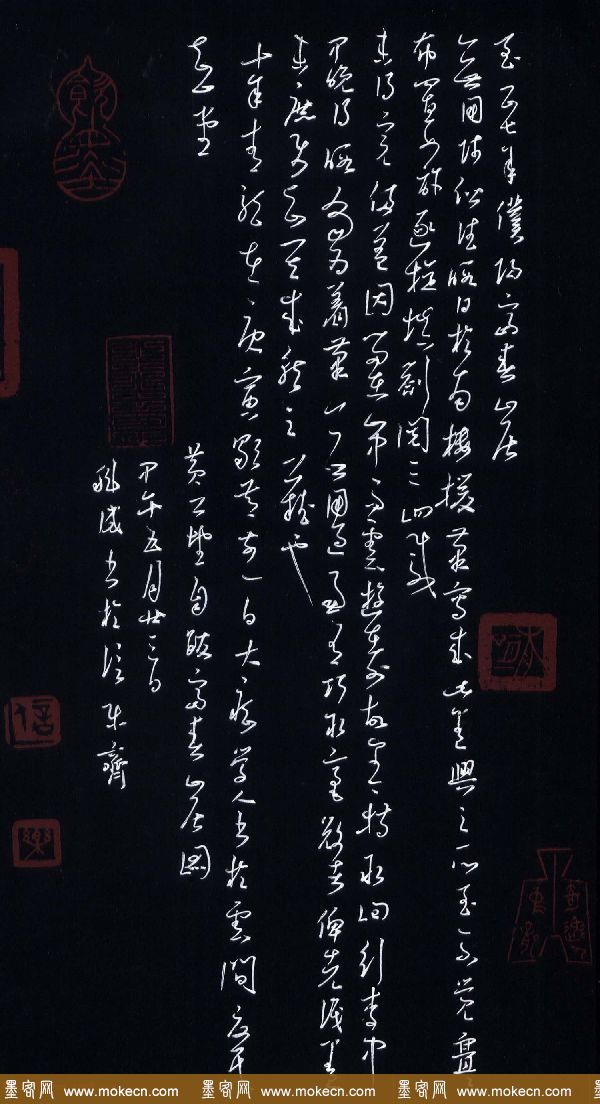 至正七年僕歸富春山居
無用師偕往暇日於南樓援筆寫成此卷興之所至不覺亹亹
布置如許逐旋填劄閱三四載
未得完備蓋因留在山中而雲遊在外故爾今特取回行李中
早晚得暇當為着筆無用過慮有巧取豪敚者俾先識卷
末庶使知其成就之難也
十年青龍在庚寅歜節前一日大癡學人書於雲間夏氏
知止堂
黃公望自跋富春山居圖
甲午五月廿三日
書於信樂齋
信
樂
墨客网 www.mokecn.com 墨客网 www.mokecn.com 墨客网 www.mokecn.com